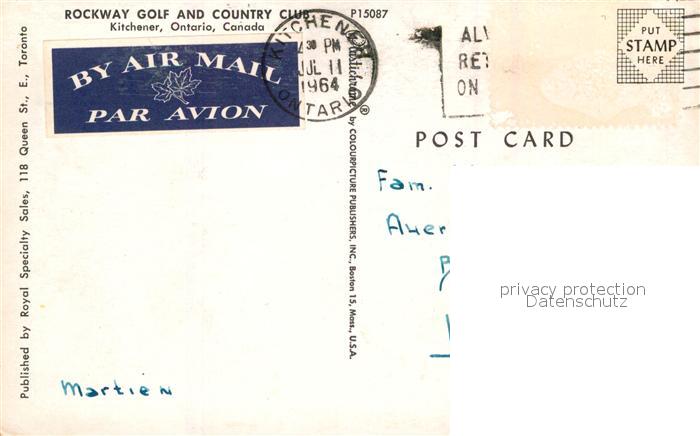 ROCKWAY GOLF AND COUNTRY CLUB
Kitchener, Ontario, Canada
P15087
BY AIR MAIL
PAR AVION
KITCHENER
4 30 PM
JUL 11
1964
ONTARIO
ON
PUT
STAMP
HERE
POST CARD
Published by Royal Specialty Sales, 118 Queen St., E., Toronto
® by COLOURPICTURE PUBLISHERS, INC., Boston 15, Mass., U.S.A.
Fam.
privacy protection
Datenschutz
Martien